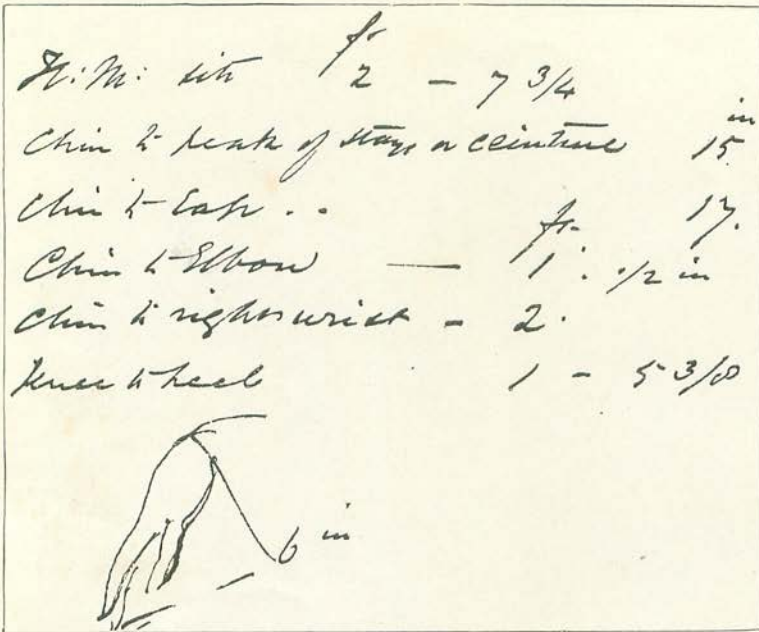 H: M: sits ft 2 - 7 3/4
Chin to peak of stays or ceinture 15 in
Chin to .. 17.
Chin to Elbow — ft 1 . 1/2 in
Chin to right wrist - 2.
Knee to heel 1 - 5 3/8
6 in